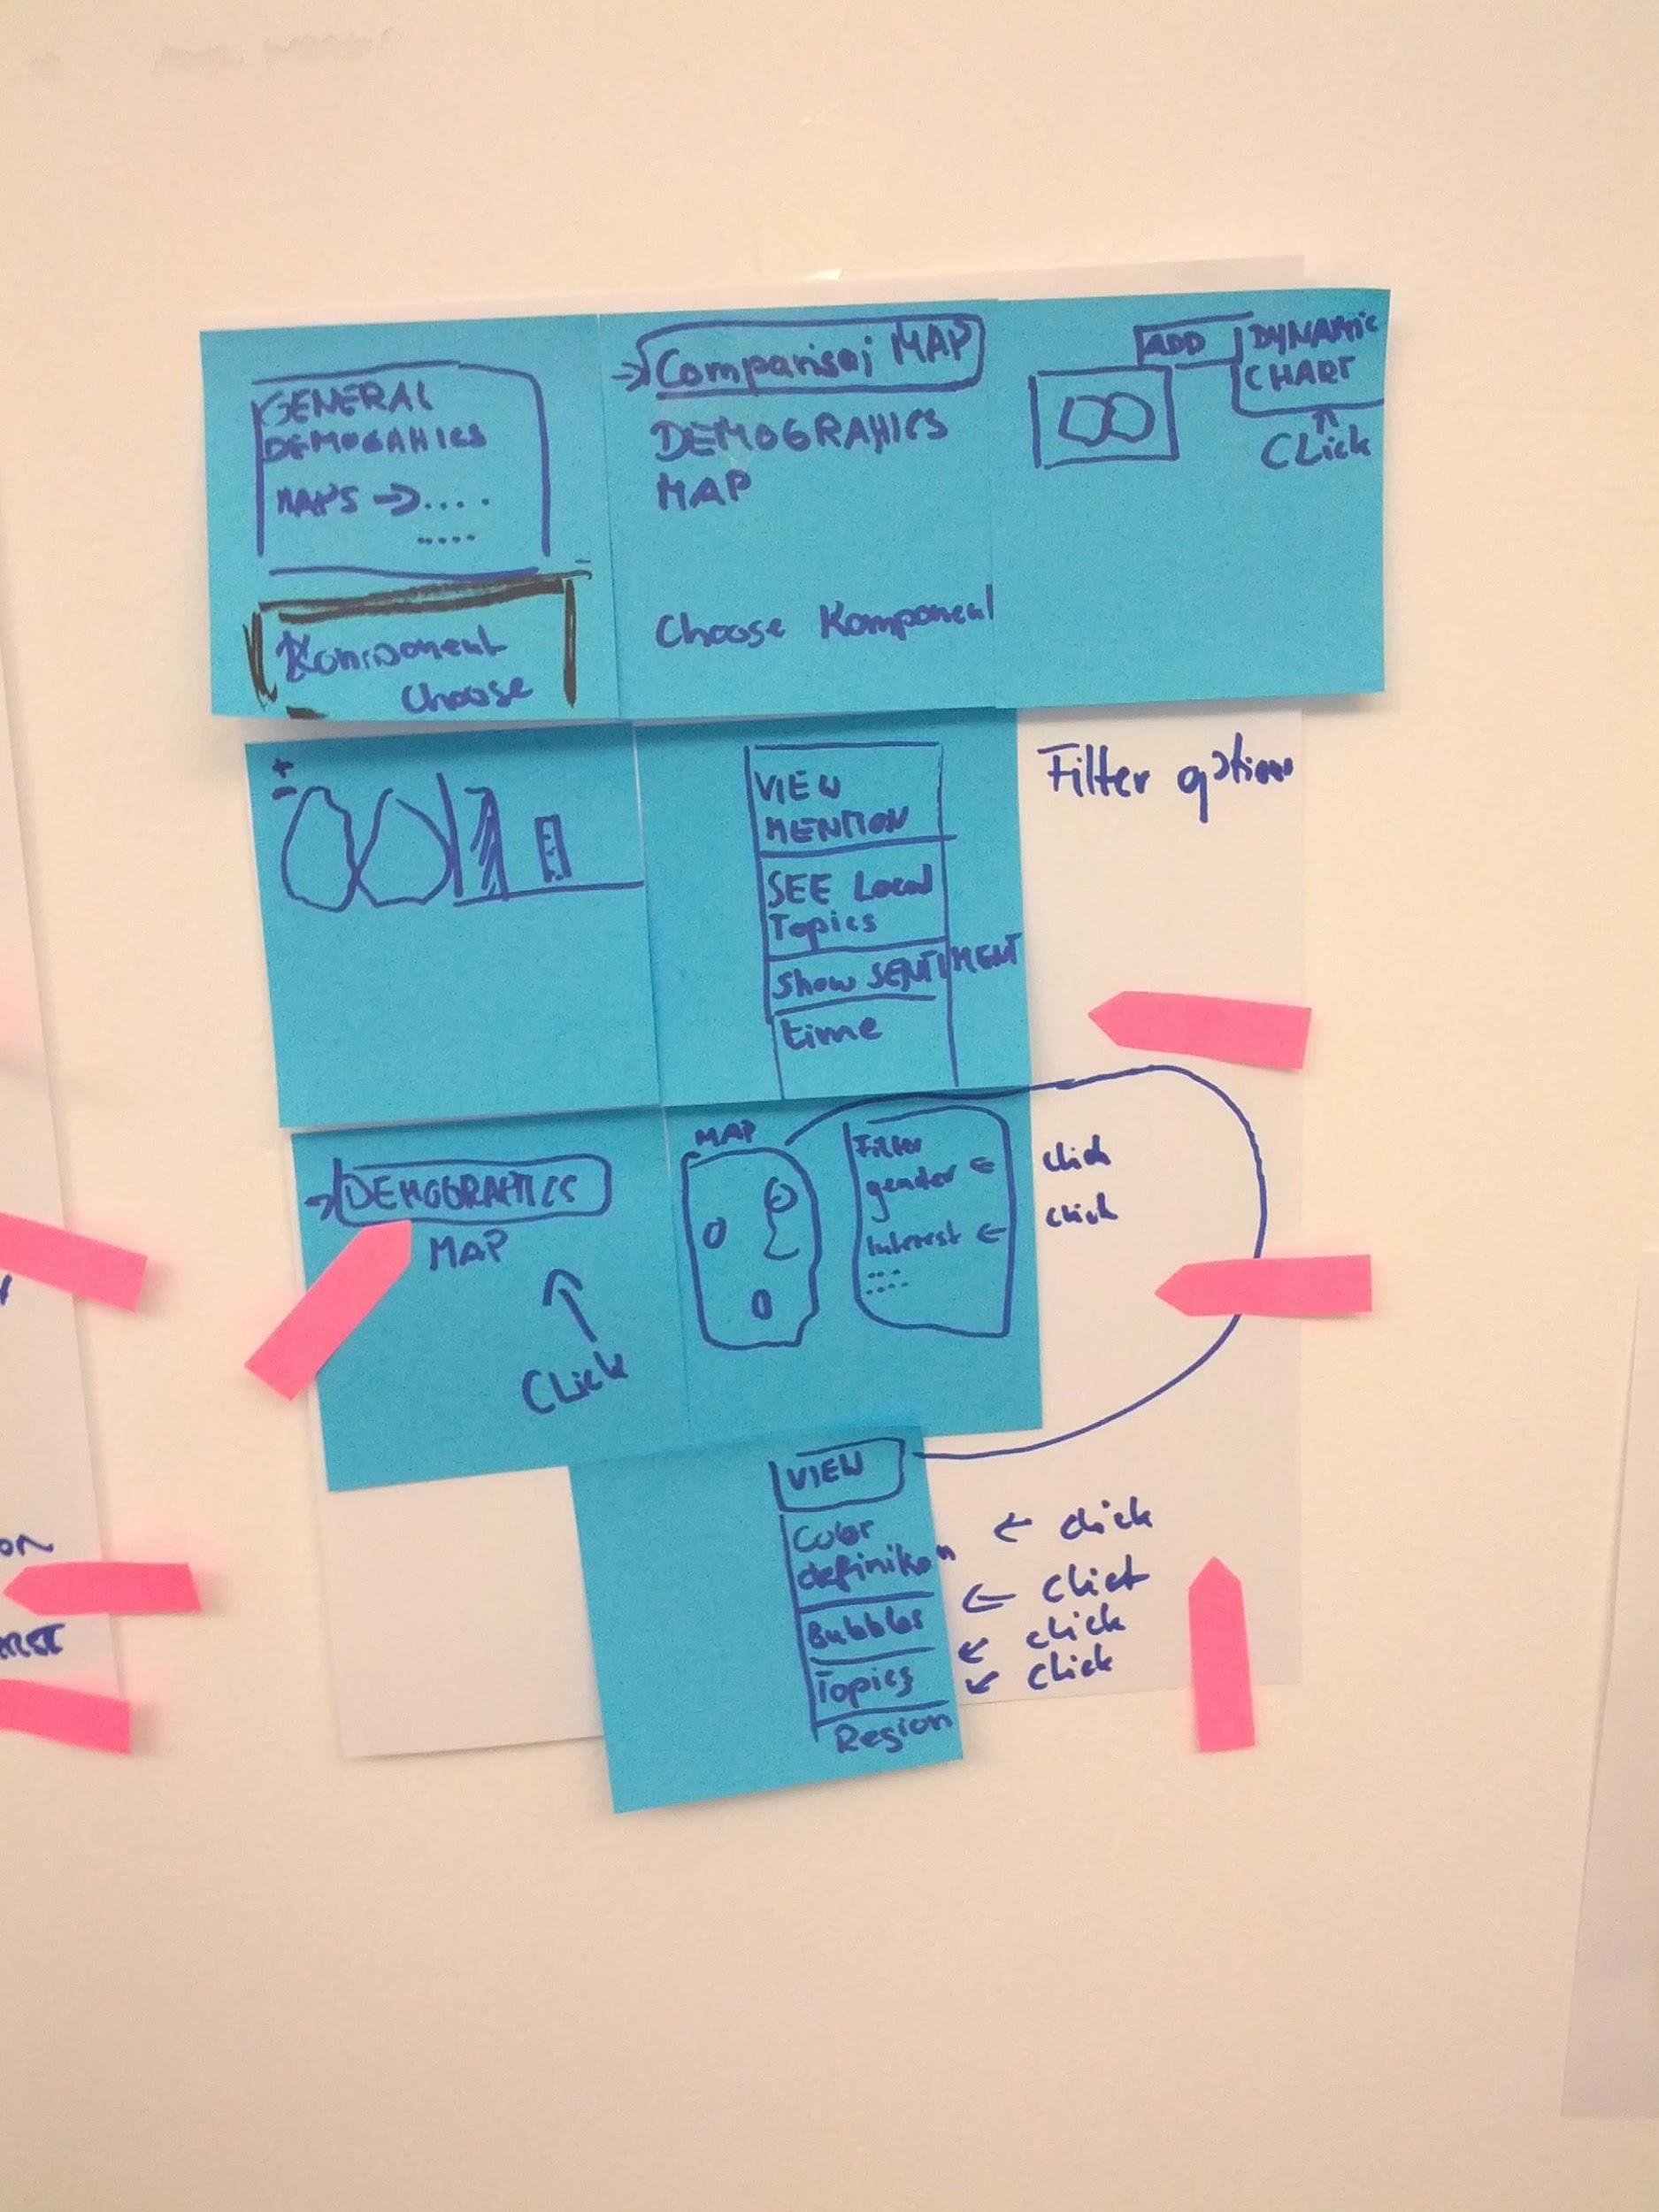 GENERAL
DEMOGAHICS
MAPS → ....
.....
Komponent
Choose
→ Comparison MAP
DEMOGRAHICS
MAP
Choose Komponent
ADD
DYNAMIC
CHART
CLick
+
-
VIEW
MENTION
SEE Local
Topics
Show SENTIMENT
time
Filter option
→ DEMOGRAHICS
MAP
CLick
MAP
Filter
gender ←
Interest ←
click
click
VIEW
Color
definition
Bubbles
Topics
Region
← click
← click
← click
← click
ON